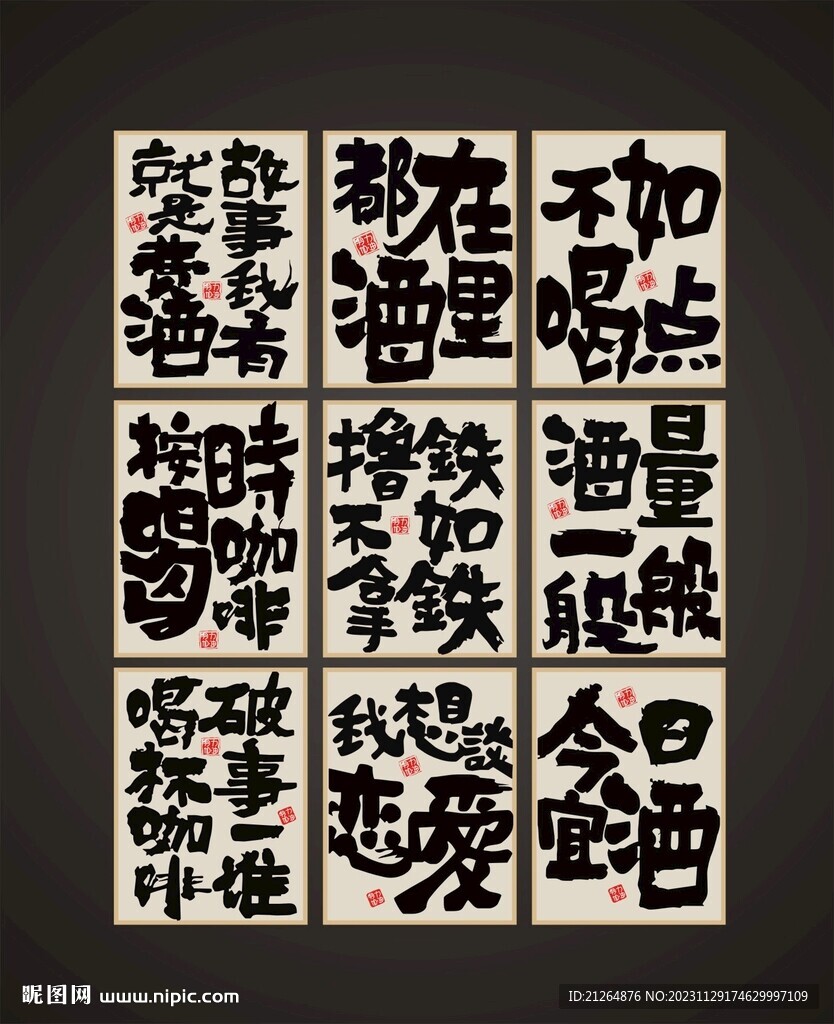 故事我有
就是费酒
都在
酒里
不如
喝点
按時
喝咖啡
撸鉄
不如
拿鉄
酒量
一般般
破事一堆
喝杯咖啡
我想談
恋愛
今日
宜酒
昵图网 www.nipic.com
ID:21264876 NO:20231129174629997109